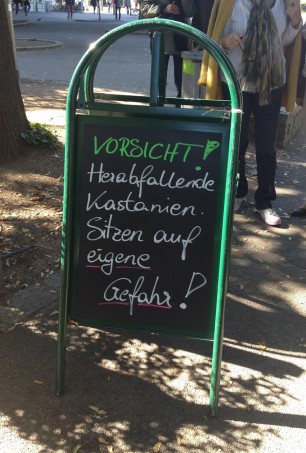 VORSICHT!
Herabfallende
Kastanien.
Sitzen auf
eigene
Gefahr!